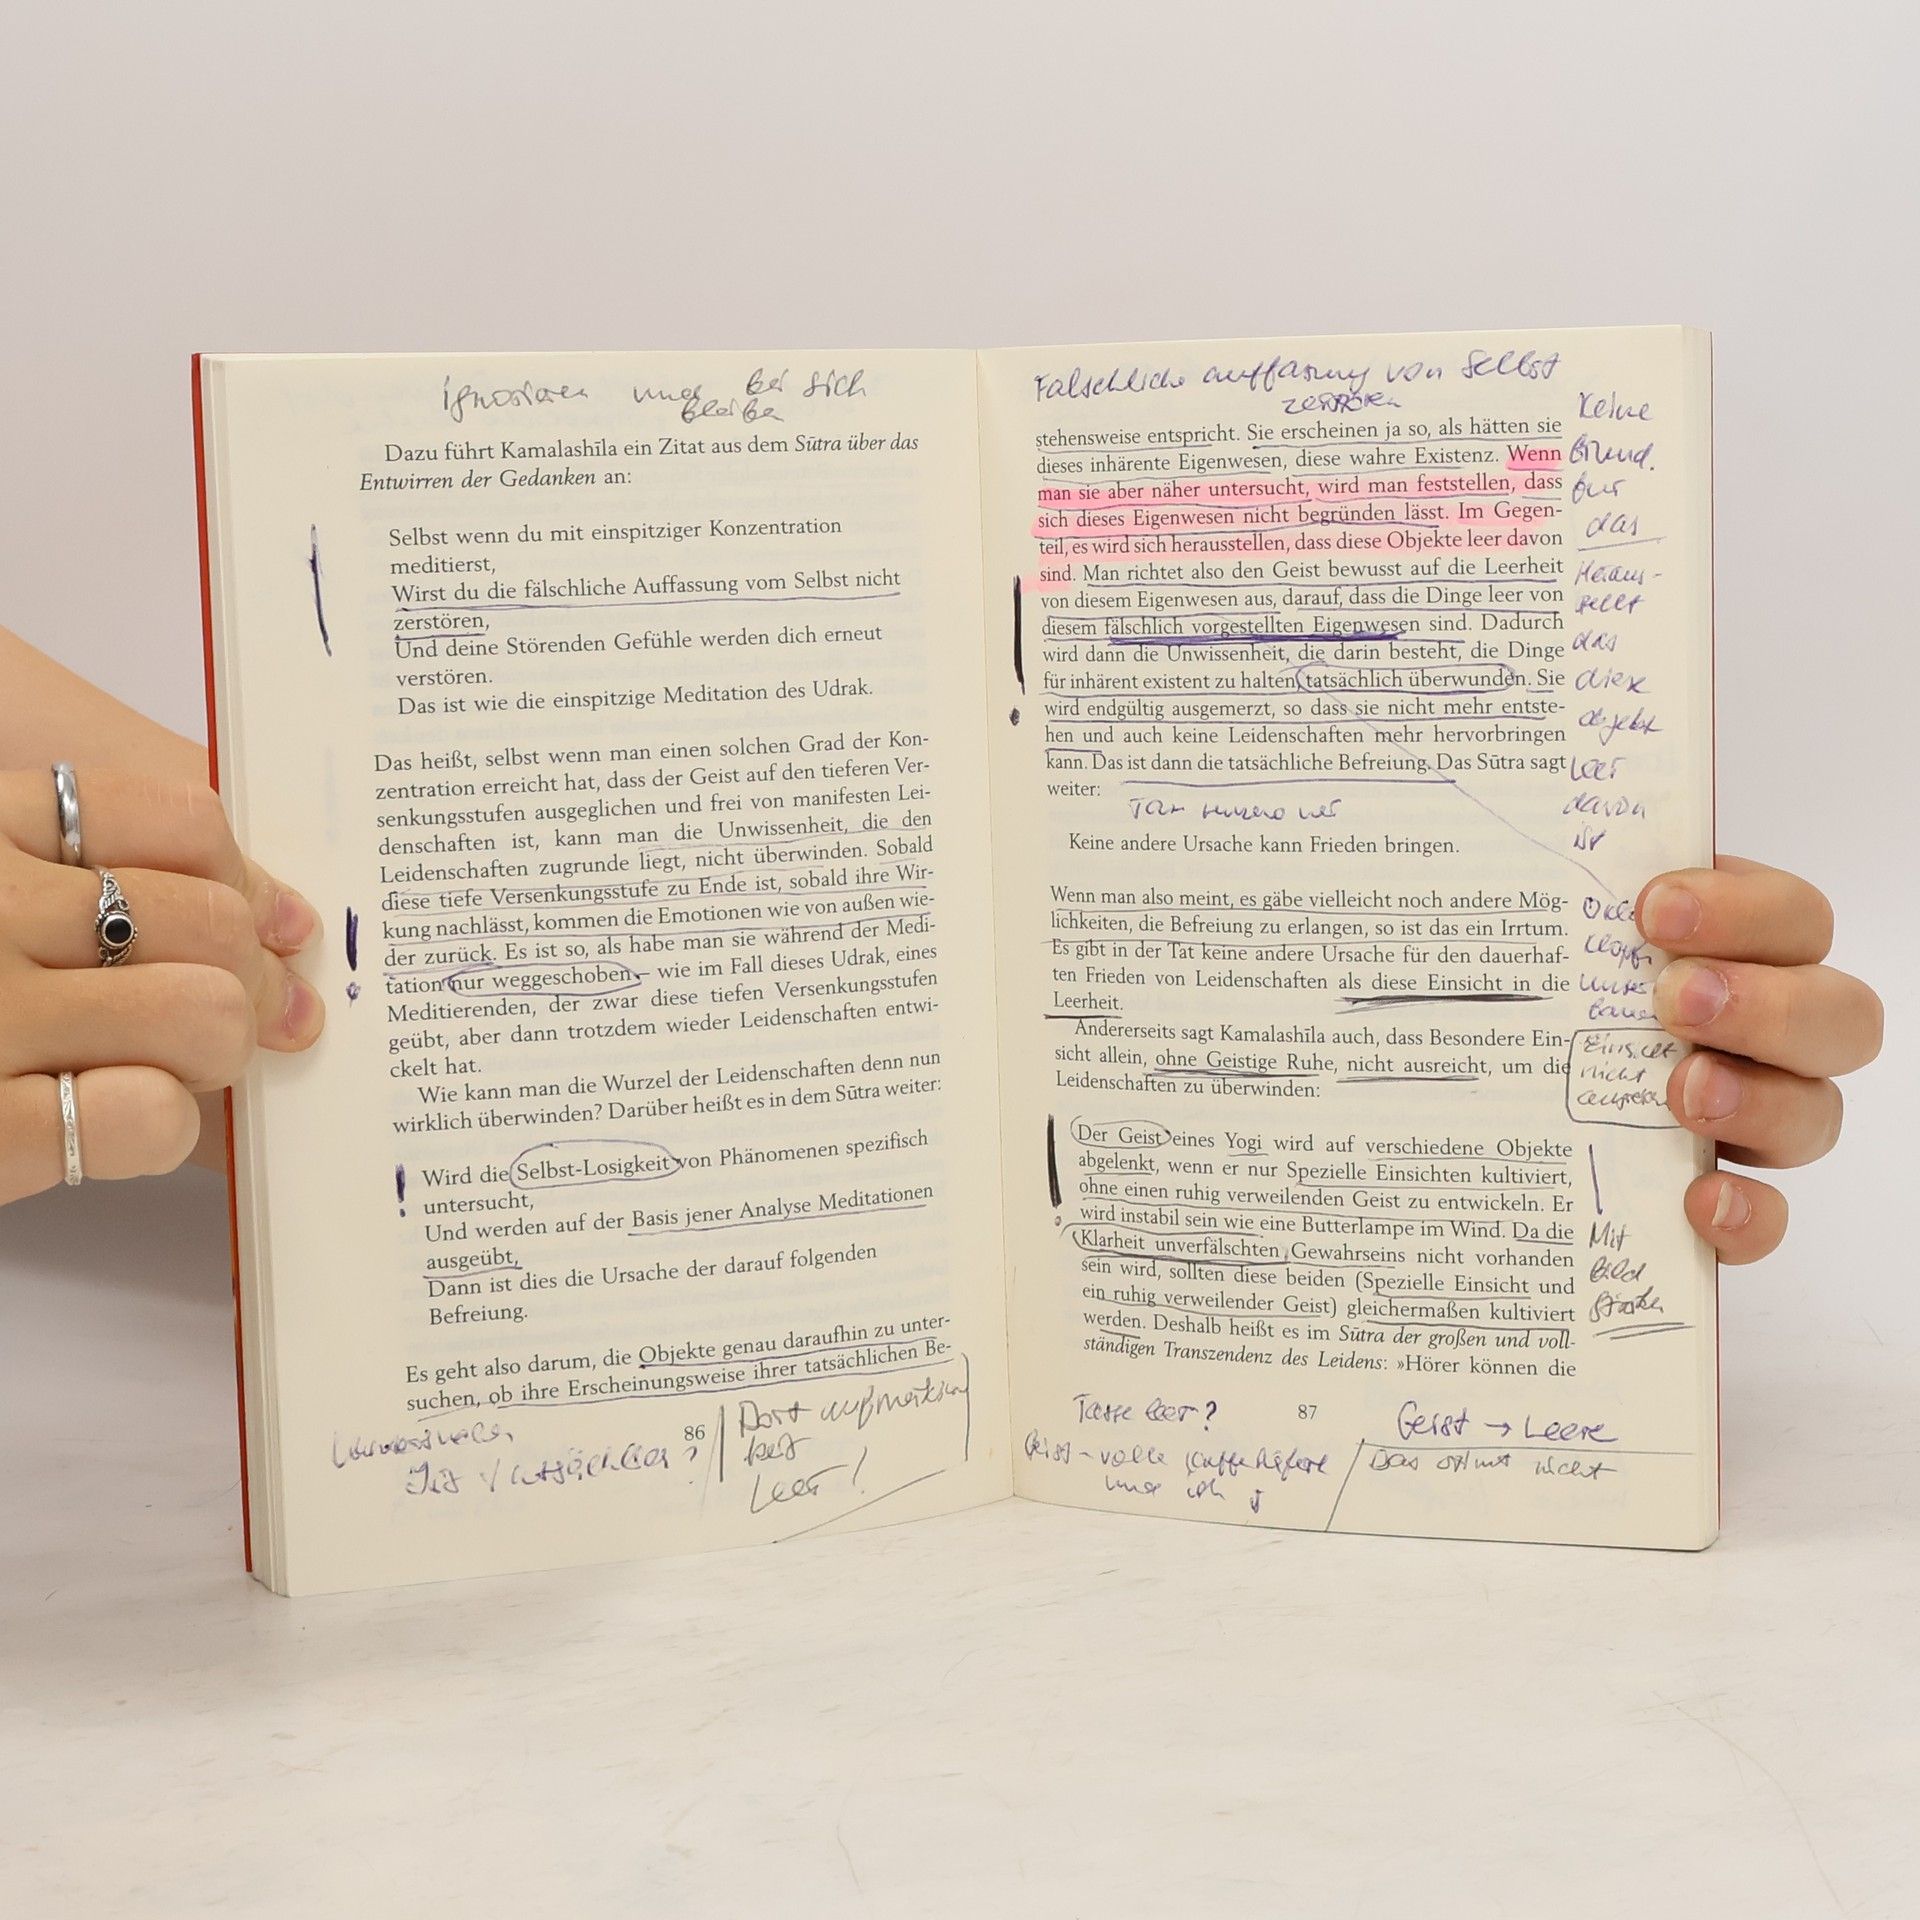 ignorieren und bei sich
bleiben
Dazu führt Kamalashīla ein Zitat aus dem Sūtra über das
Entwirren der Gedanken an:
Selbst wenn du mit einspitziger Konzentration
meditierst,
Wirst du die fälschliche Auffassung vom Selbst nicht
zerstören,
Und deine Störenden Gefühle werden dich erneut
verstören.
Das ist wie die einspitzige Meditation des Udrak.
Das heißt, selbst wenn man einen solchen Grad der Kon-
zentration erreicht hat, dass der Geist auf den tieferen Ver-
senkungsstufen ausgeglichen und frei von manifesten Lei-
denschaften ist, kann man die Unwissenheit, die den
Leidenschaften zugrunde liegt, nicht überwinden. Sobald
diese tiefe Versenkungsstufe zu Ende ist, sobald ihre Wir-
kung nachlässt, kommen die Emotionen wie von außen wie-
der zurück. Es ist so, als habe man sie während der Medi-
tation nur weggeschoben – wie im Fall dieses Udrak, eines
Meditierenden, der zwar diese tiefen Versenkungsstufen
geübt, aber dann trotzdem wieder Leidenschaften entwi-
ckelt hat.
Wie kann man die Wurzel der Leidenschaften denn nun
wirklich überwinden? Darüber heißt es in dem Sūtra weiter:
Wird die Selbst-Losigkeit von Phänomenen spezifisch
untersucht,
Und werden auf der Basis jener Analyse Meditationen
ausgeübt,
Dann ist dies die Ursache der darauf folgenden
Befreiung.
Es geht also darum, die Objekte genau daraufhin zu unter-
suchen, ob ihre Erscheinungsweise ihrer tatsächlichen Be-
86
Leer!
Fälschliche auffassung von Selbst
zerstören
stehensweise entspricht. Sie erscheinen ja so, als hätten sie
dieses inhärente Eigenwesen, diese wahre Existenz. Wenn
man sie aber näher untersucht, wird man feststellen, dass
sich dieses Eigenwesen nicht begründen lässt. Im Gegen-
teil, es wird sich herausstellen, dass diese Objekte leer davon
sind. Man richtet also den Geist bewusst auf die Leerheit
von diesem Eigenwesen aus, darauf, dass die Dinge leer von
diesem fälschlich vorgestellten Eigenwesen sind. Dadurch
wird dann die Unwissenheit, die darin besteht, die Dinge
für inhärent existent zu halten, tatsächlich überwunden. Sie
wird endgültig ausgemerzt, so dass sie nicht mehr entste-
hen und auch keine Leidenschaften mehr hervorbringen
kann. Das ist dann die tatsächliche Befreiung. Das Sūtra sagt
weiter:
Keine andere Ursache kann Frieden bringen.
Wenn man also meint, es gäbe vielleicht noch andere Mög-
lichkeiten, die Befreiung zu erlangen, so ist das ein Irrtum.
Es gibt in der Tat keine andere Ursache für den dauerhaf-
ten Frieden von Leidenschaften als diese Einsicht in die
Leerheit.
Andererseits sagt Kamalashīla auch, dass Besondere Ein-
sicht allein, ohne Geistige Ruhe, nicht ausreicht, um die
Leidenschaften zu überwinden:
Der Geist eines Yogi wird auf verschiedene Objekte
abgelenkt, wenn er nur Spezielle Einsichten kultiviert,
ohne einen ruhig verweilenden Geist zu entwickeln. Er
wird instabil sein wie eine Butterlampe im Wind. Da die
Klarheit unverfälschten Gewahrseins nicht vorhanden
sein wird, sollten diese beiden (Spezielle Einsicht und
ein ruhig verweilender Geist) gleichermaßen kultiviert
werden. Deshalb heißt es im Sūtra der großen und voll-
ständigen Transzendenz des Leidens: »Hörer können die
87
Keine
Grund.
für
das
Heraus-
stellt
das
diese
objekt
Leer
davon
ist
Einsicht
nicht
Mit
Bild
Tasse leer?
Geist → Leere
Das stimt nicht
und ich